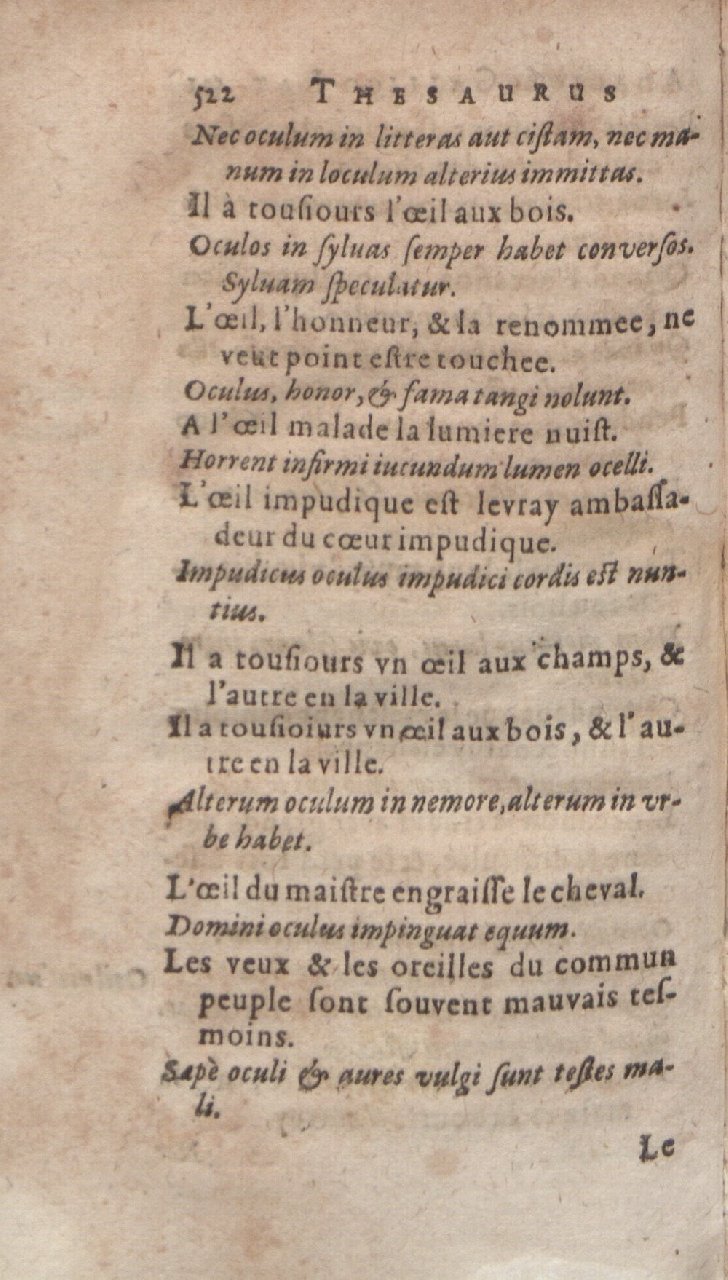 522 THESAURUS
Nec oculum in litteras aut ciſtam, nec ma-
num in loculum alterius immittas.
Il à touſiours l'œil aux bois.
Oculos in ſyluas ſemper habet converſos.
Syluam ſpeculatur.
L'œil, l'honneur, & la renommee, ne
veut point eſtre touchee.
Oculus, honor, & fama tangi nolunt.
A l'œil malade la lumiere nuiſt.
Horrent infirmi iucundum lumen ocelli.
L'œil impudique eſt le vray ambaſſa-
deur du cœur impudique.
Impudicus oculus impudici cordis eſt nun-
tius.
Il a touſiours vn œil aux champs, &
l'autre en la ville.
Il a touſioiurs vn œil aux bois, & l'au-
tre en la ville.
Alterum oculum in nemore, alterum in vr-
be habet.
L'œil du maiſtre engraiſſe le cheval.
Domini oculus impinguat equum.
Les yeux & les oreilles du commun
peuple ſont ſouvent mauvais teſ-
moins.
Sæpè oculi & aures vulgi ſunt teſtes ma-
li.
Le